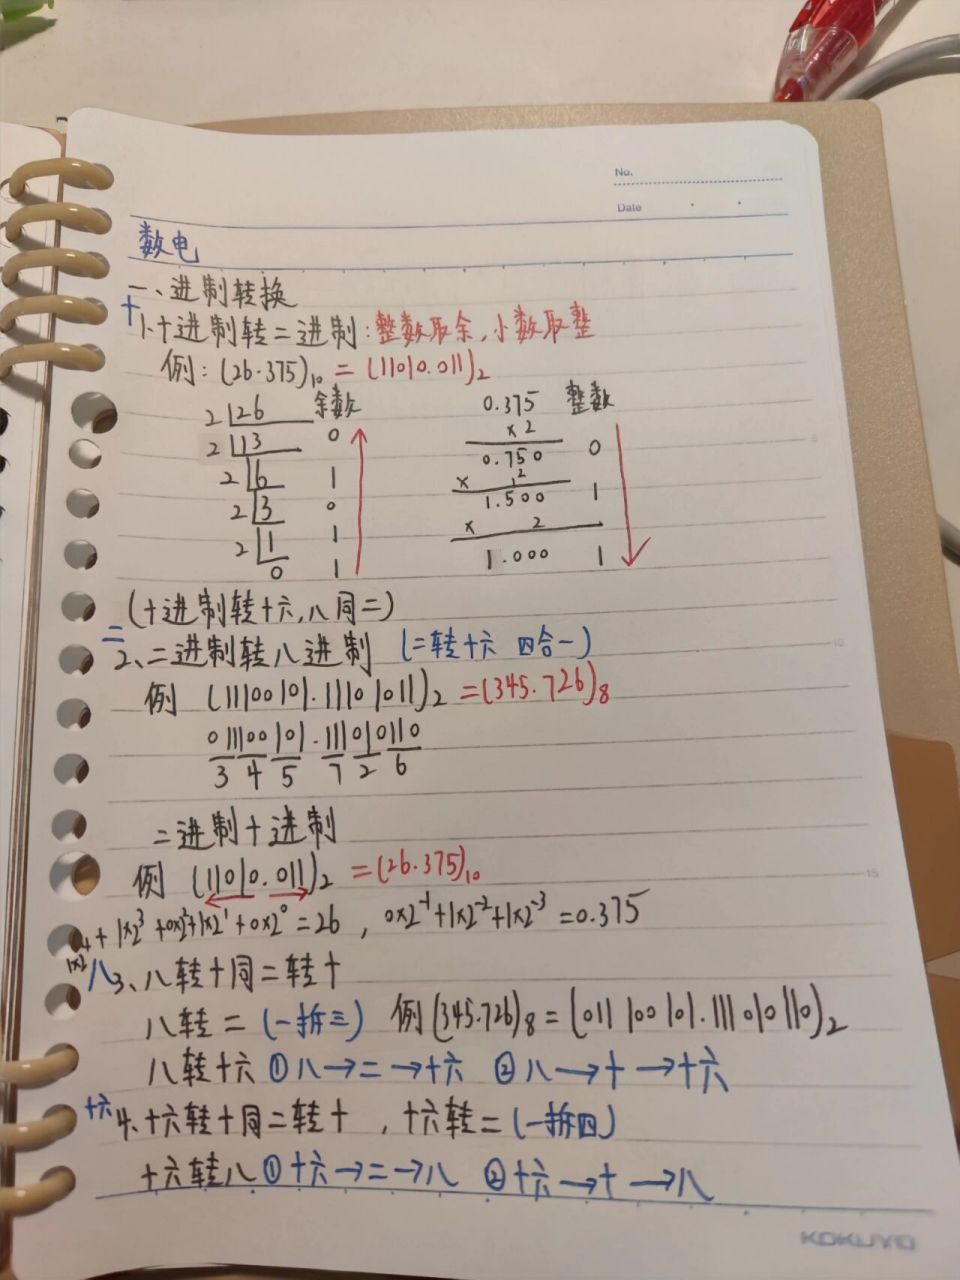 No.
Date
数电
一、进制转换
十 1、十进制转二进制：整数取余，小数取整
例：(26.375)₁₀ = (11010.011)₂
2 26 余数 0.375 整数
× 2
2 13 0 0.750 0
2 6 1 × 2
1.500 1
2 3 0 × 2
2 1 1 1.000 1
0 1
(十进制转十六，八同二)
二 2、二进制转八进制 (二转十六 四合一)
例 (11100101.11101011)₂ = (345.726)₈
011100101.111010110
3 4 5 7 2 6
二进制十进制
例 (11010.011)₂ = (26.375)₁₀
1×2⁴+1×2³+0×2²+1×2¹+0×2⁰=26，0×2⁻¹+1×2⁻²+1×2⁻³=0.375
八 3、八转十同二转十
八转二 (一拆三) 例(345.726)₈ = (011 100 101.111 010 110)₂
八转十六 ①八→二→十六 ②八→十→十六
十六 4、十六转十同二转十，十六转二(一拆四)
十六转八 ①十六→二→八 ②十六→十→八
KOKUYO